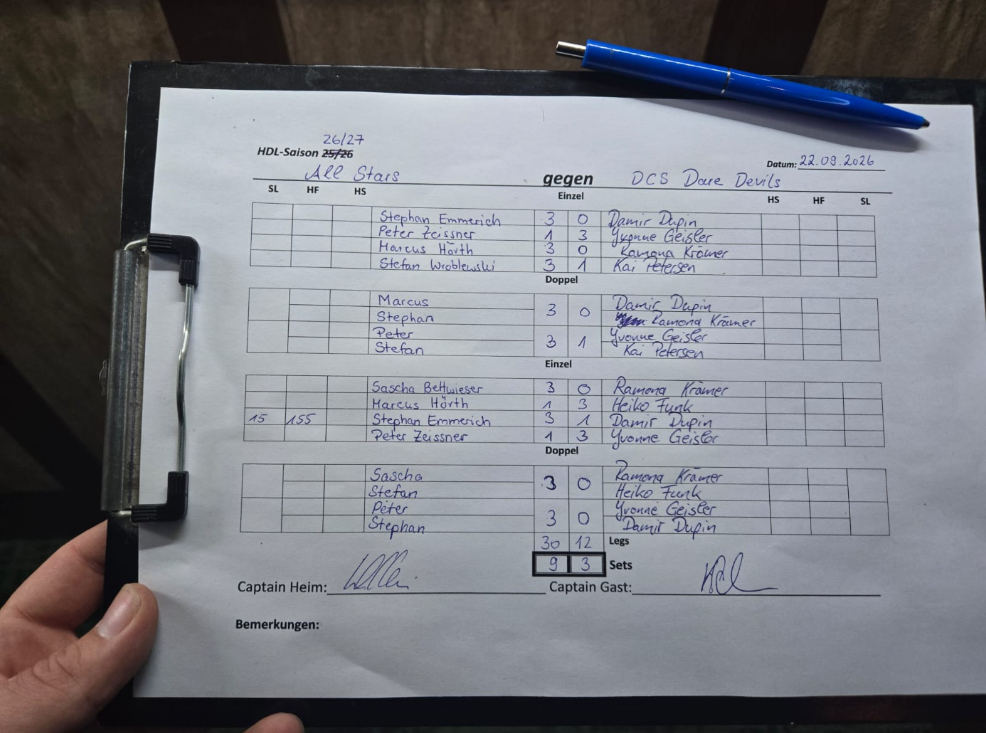 26/27
HDL-Saison 25/26
Datum: 22.09.2026
All Stars gegen DCS Dare Devils
SL HF HS Einzel HS HF SL
Stephan Emmerich 3 0 Damir Dupin
Peter Zeissner 1 3 Yvonne Geisler
Marcus Hörth 3 0 Ramona Krämer
Stefan Wroblewski 3 1 Kai Petersen
Doppel
Marcus 3 0 Damir Dupin
Stephan Ramona Krämer
Peter 3 1 Yvonne Geisler
Stefan Kai Petersen
Einzel
Sascha Bettwieser 3 0 Ramona Krämer
Marcus Hörth 1 3 Heiko Funk
15 155 Stephan Emmerich 3 1 Damir Dupin
Peter Zeissner 1 3 Yvonne Geisler
Doppel
Sascha 3 0 Ramona Krämer
Stefan Heiko Funk
Peter 3 0 Yvonne Geisler
Stephan Damir Dupin
30 12 Legs
9 3 Sets
Captain Heim: Captain Gast:
Bemerkungen: